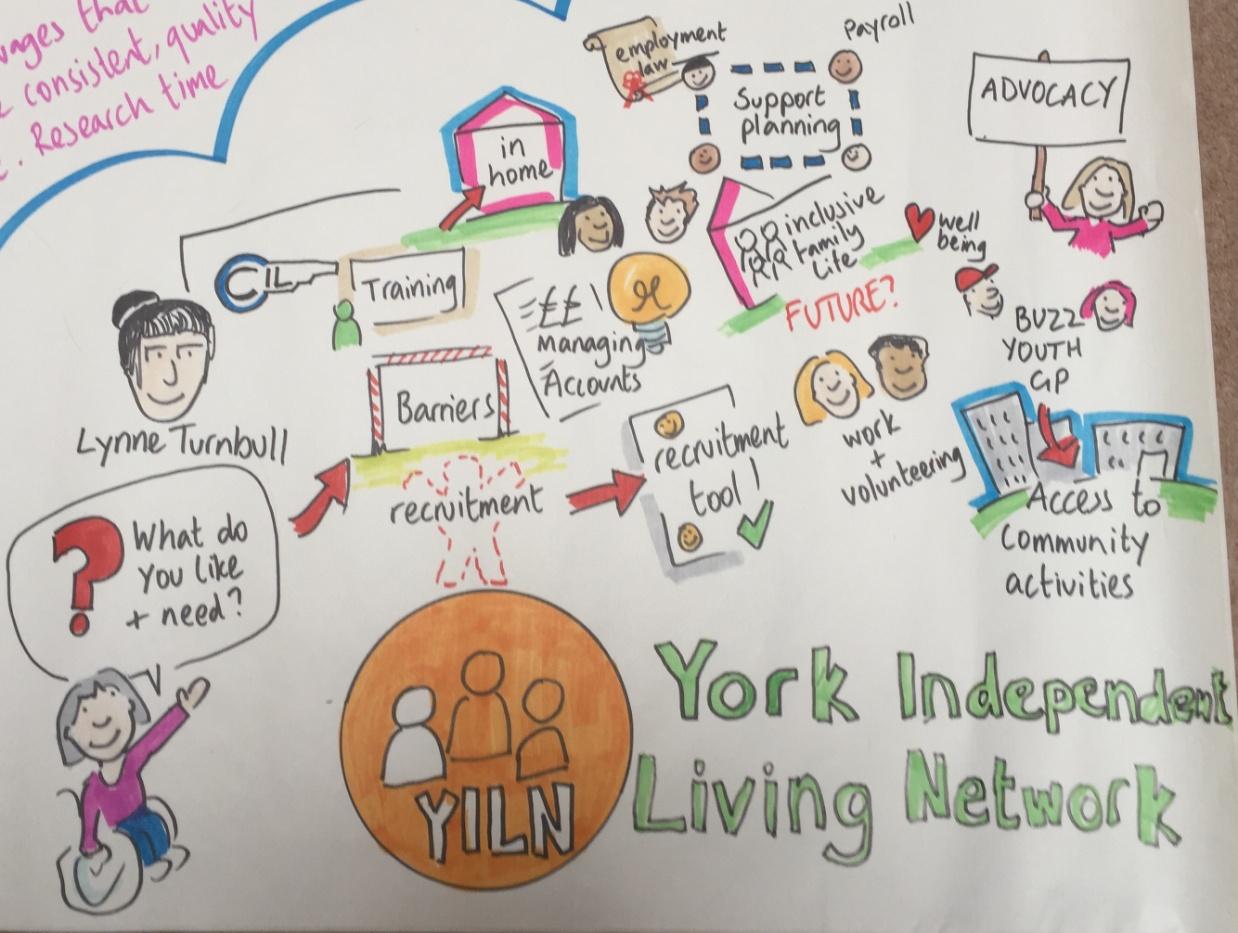 wages that
consistent, quality
Research time
employment
law
Payroll
Support
planning
ADVOCACY
in
home
inclusive
family
life
well
being
CIL
Training
FUTURE?
££
Managing
Accounts
BUZZ
YOUTH
GP
Lynne Turnbull
Barriers
recruitment
recruitment
tool!
work
+
volunteering
Access to
Community
activities
What do
you like
+ need?
?
YILN
York Independent
Living Network